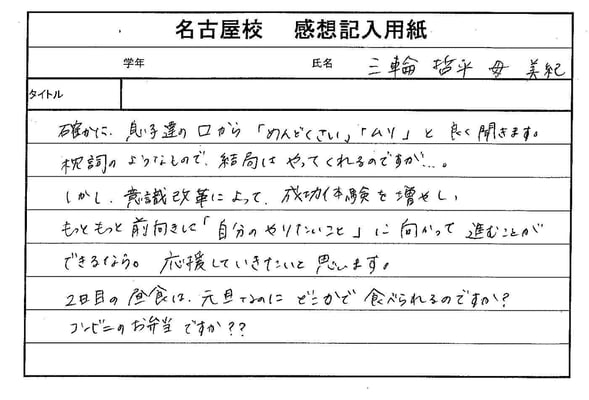 名古屋校 感想記入用紙
学年 氏名 三輪 指平 母 美紀
タイトル
確かに、息子達の口から「めんどくさい」「ムリ」と良く聞きます。
枕詞のようなもので、結局はやってくれるのですが…。
しかし、意識改革によって、成功体験を増やし、
もっともっと前向きに「自分のやりたいこと」に向かって進むことが
できるなら。応援していきたいと思います。
2日目の昼食は、元旦なのにどこかで食べられるのですか?
コンビニのお弁当ですか??